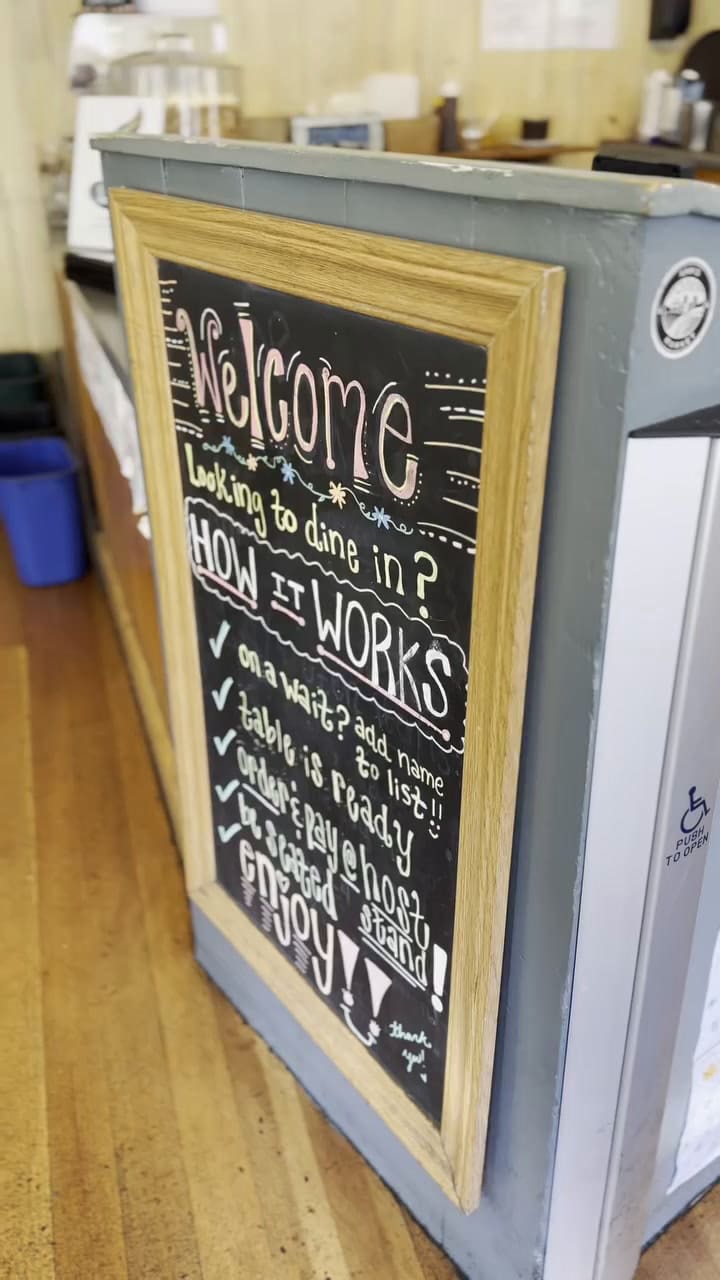 Welcome
Looking to dine in?
HOW IT WORKS
✓ on a wait? add name
to list!!
✓ table is ready
✓ order & pay @ host
stand!
✓ be seated
✓ enjoy!!
thank
you!
PUSH
TO OPEN